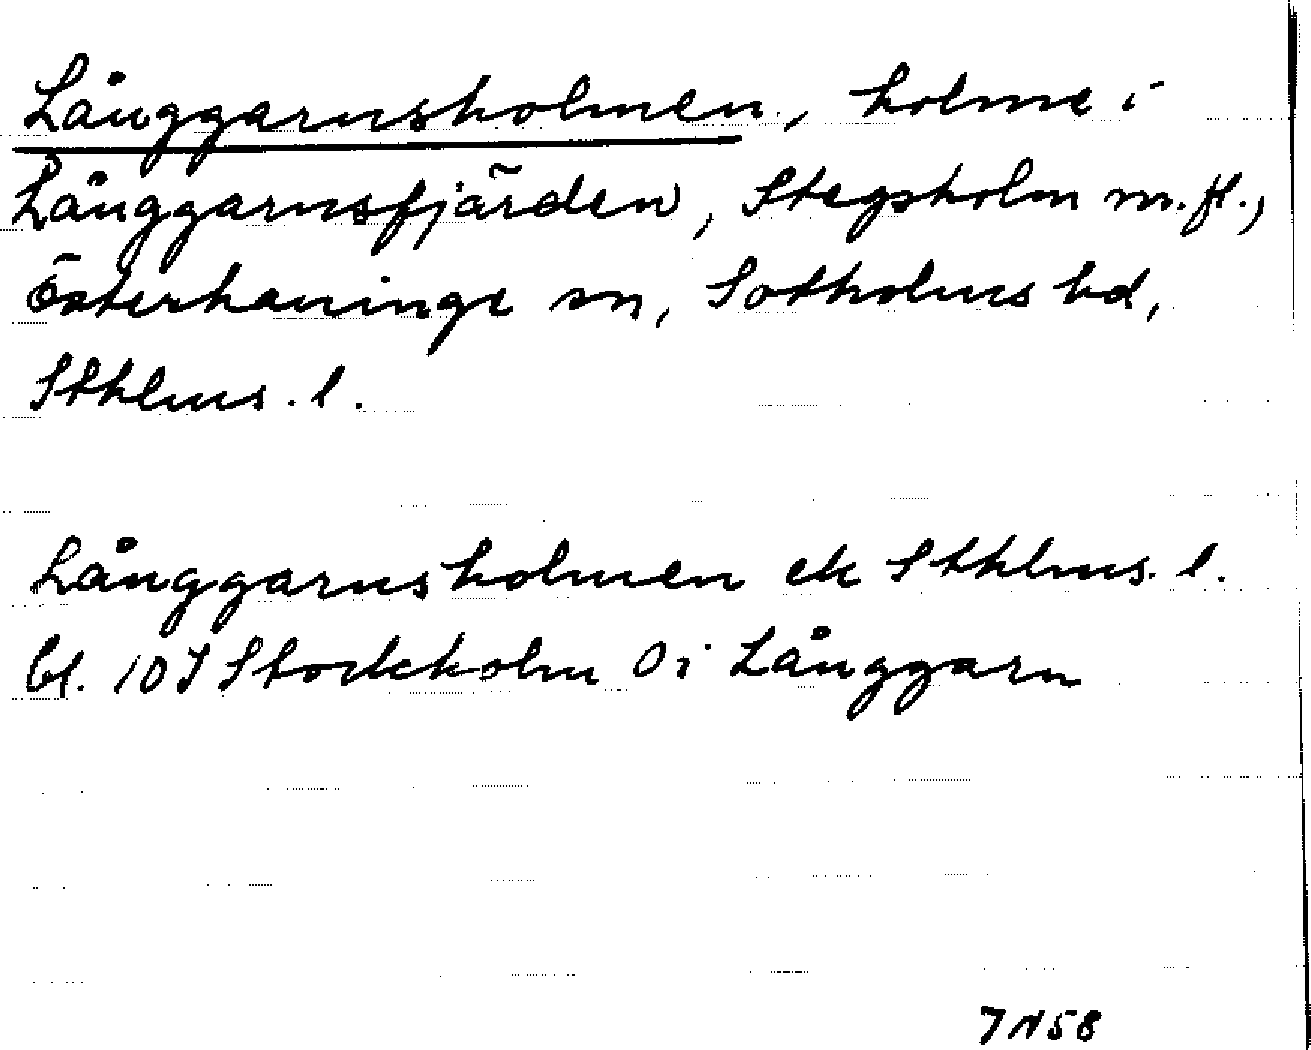 Långgarnsholmen, holme i
Långgarnsfjärden, Stegsholm m.fl.,
Österhaninge sn, Sotholms hd,
Sthlms. l.
Långgarnsholmen ek Sthlms. l.
bl. 10J Stockholm O i Långgarn
7 N 58